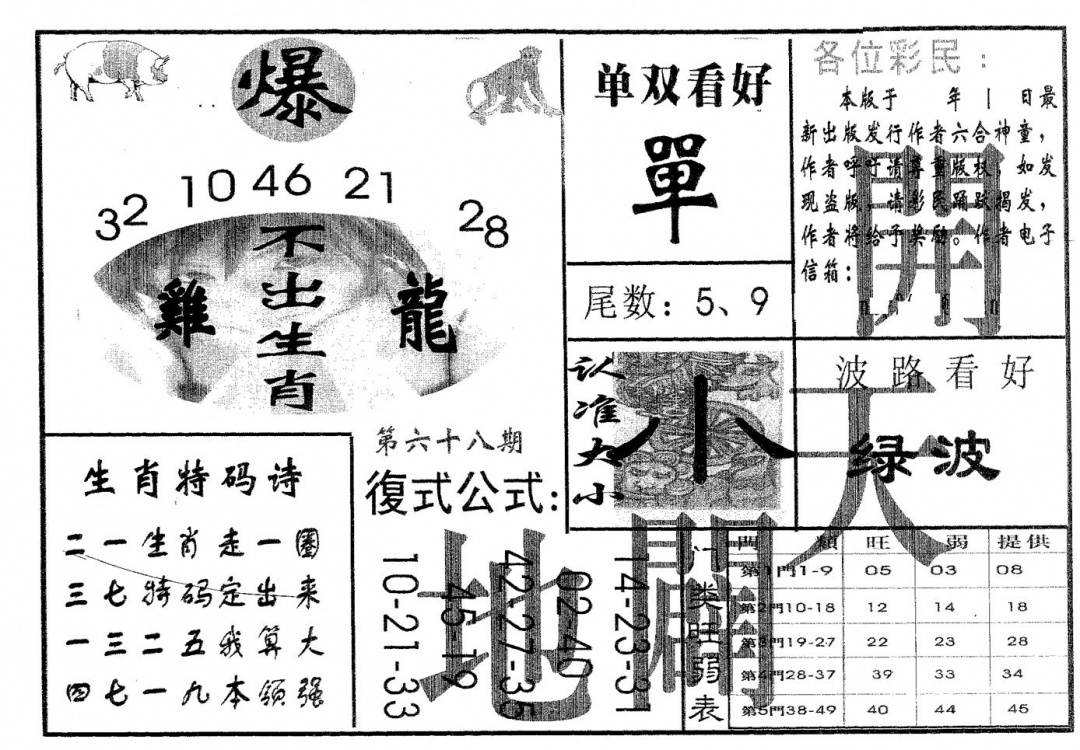 爆
32 10 46 21 28
不出生肖
雞
龍
单双看好
單
尾数：5、9
各位彩民：
本版于 年 日最
新出版发行作者六合神童，
作者呼吁请尊重版权，如发
现盗版，请彩民踊跃揭发，
作者将给予奖励。作者电子
信箱：
認准大小
小
波路看好
绿波
生肖特码诗
二一生肖走一圈
三七特码定出来
一三二五我算大
四七一九本领强
第六十八期
復式公式：
10-21-33
45-19
42-27-35
02-40
14-23-31
開
天
闢
地
门类旺弱表
門類 旺 弱 提供
第1門1-9 05 03 08
第2門10-18 12 14 18
第3門19-27 22 23 28
第4門28-37 39 33 34
第5門38-49 40 44 45